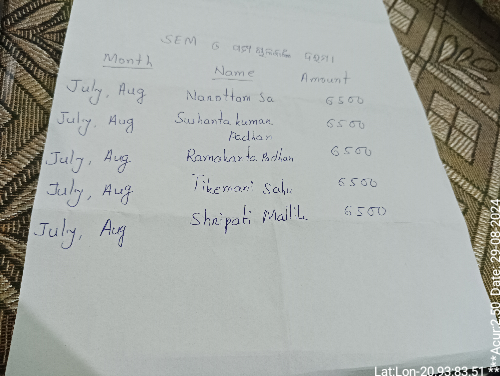 SEM 6
Month Name Amount
July, Aug Narottam Sa 6500
July, Aug Sushanta kumar Padhan 6500
July, Aug Ramakanta Padhan 6500
July, Aug Tikemani Sahu 6500
July, Aug Shripati Mallik 6500
Lat:Lon-20.93:83.51
**Acur:2.50 Date:29-08-2024